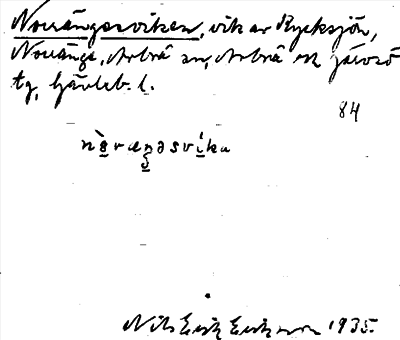 Norrängsviken, vik av Kycksjön,
Norränge, Arbrå sn, Arbrå och Järvsö
tg, Gävleb. l.
84
Nils Erik Eriksson 1935.